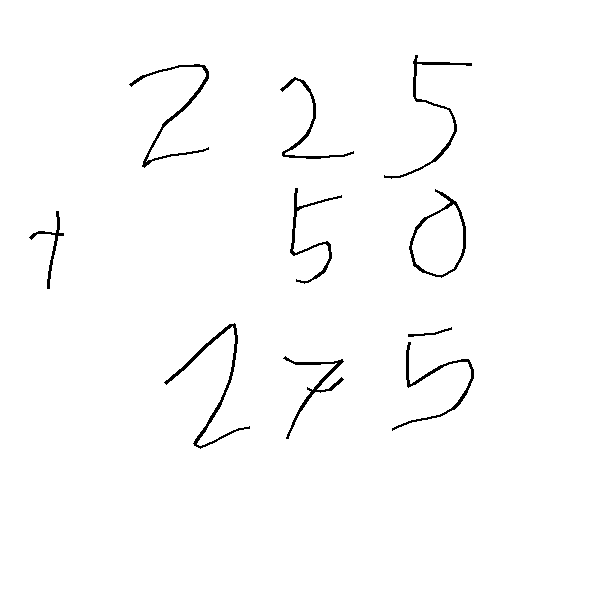 225
+ 50
275